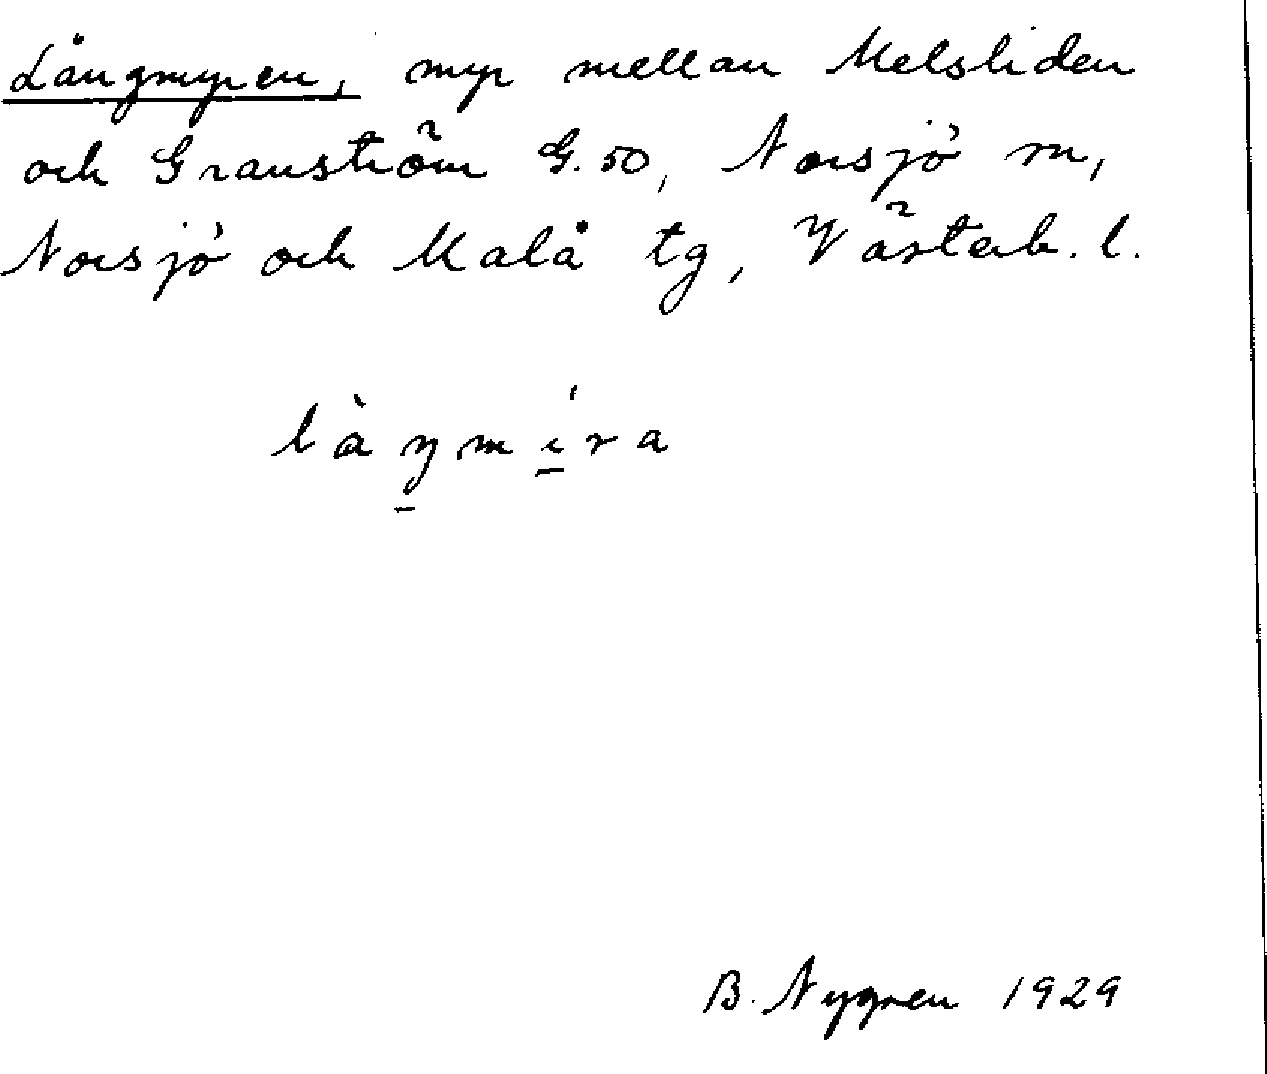 Långmyren, myr mellan Melsliden
och Granström G.50, Norsjö sn,
Norsjö och Malå tg, Västerb. l.
làŋmíra
B. Nygren 1929